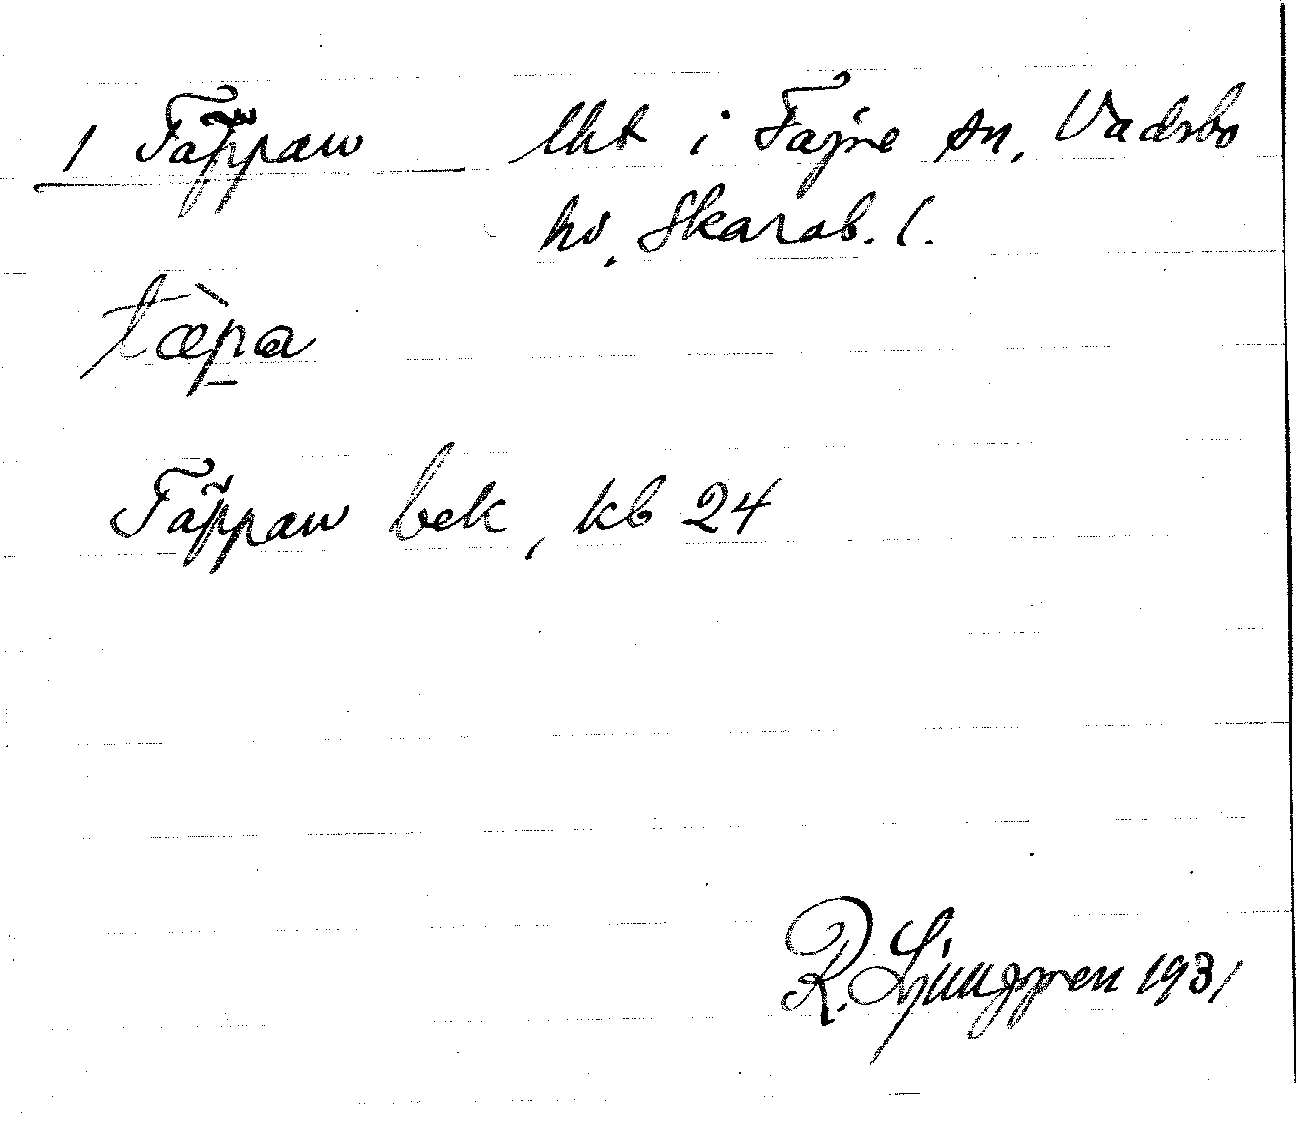 1 Täppan lht i Fägre sn, Vadsbo
hd, Skarab. l.
tæ̀pa
Täppan bek, kb 24
R. Ljunggren 1931